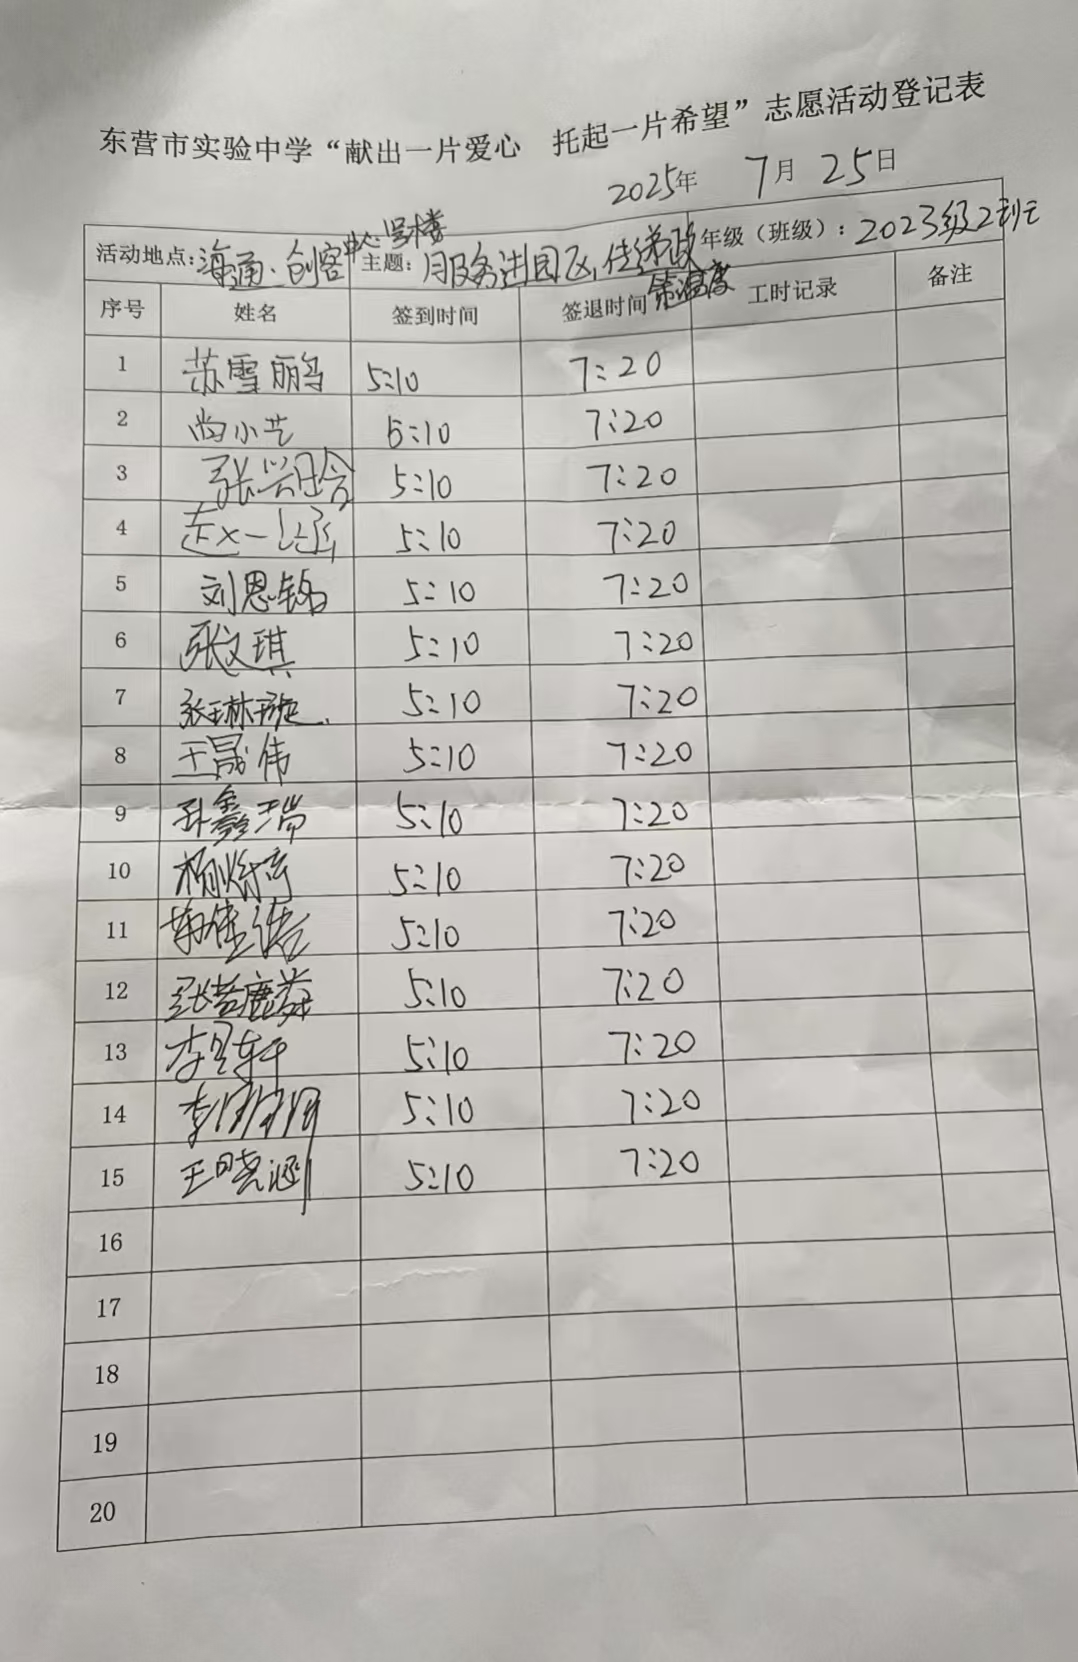 东营市实验中学“献出一片爱心 托起一片希望”志愿活动登记表
2025年 7月 25日
活动地点：海通·创客中心 号楼 主题：服务进园区，传递政策温度 年级（班级）：2023级2
序号 姓名 签到时间 签退时间 工时记录 备注
1 苏雪鹏 5:10 7:20
2 尚小艺 5:10 7:20
3 张兴晗 5:10 7:20
4 赵一 5:10 7:20
5 刘恩铭 5:10 7:20
6 张文琪 5:10 7:20
7 张琳璇 5:10 7:20
8 王晟伟 5:10 7:20
9 孙鑫瑞 5:10 7:20
10 杨 5:10 7:20
11 5:10 7:20
12 张 5:10 7:20
13 李昱轩 5:10 7:20
14 李 5:10 7:20
15 王晓涵 5:10 7:20
16
17
18
19
20